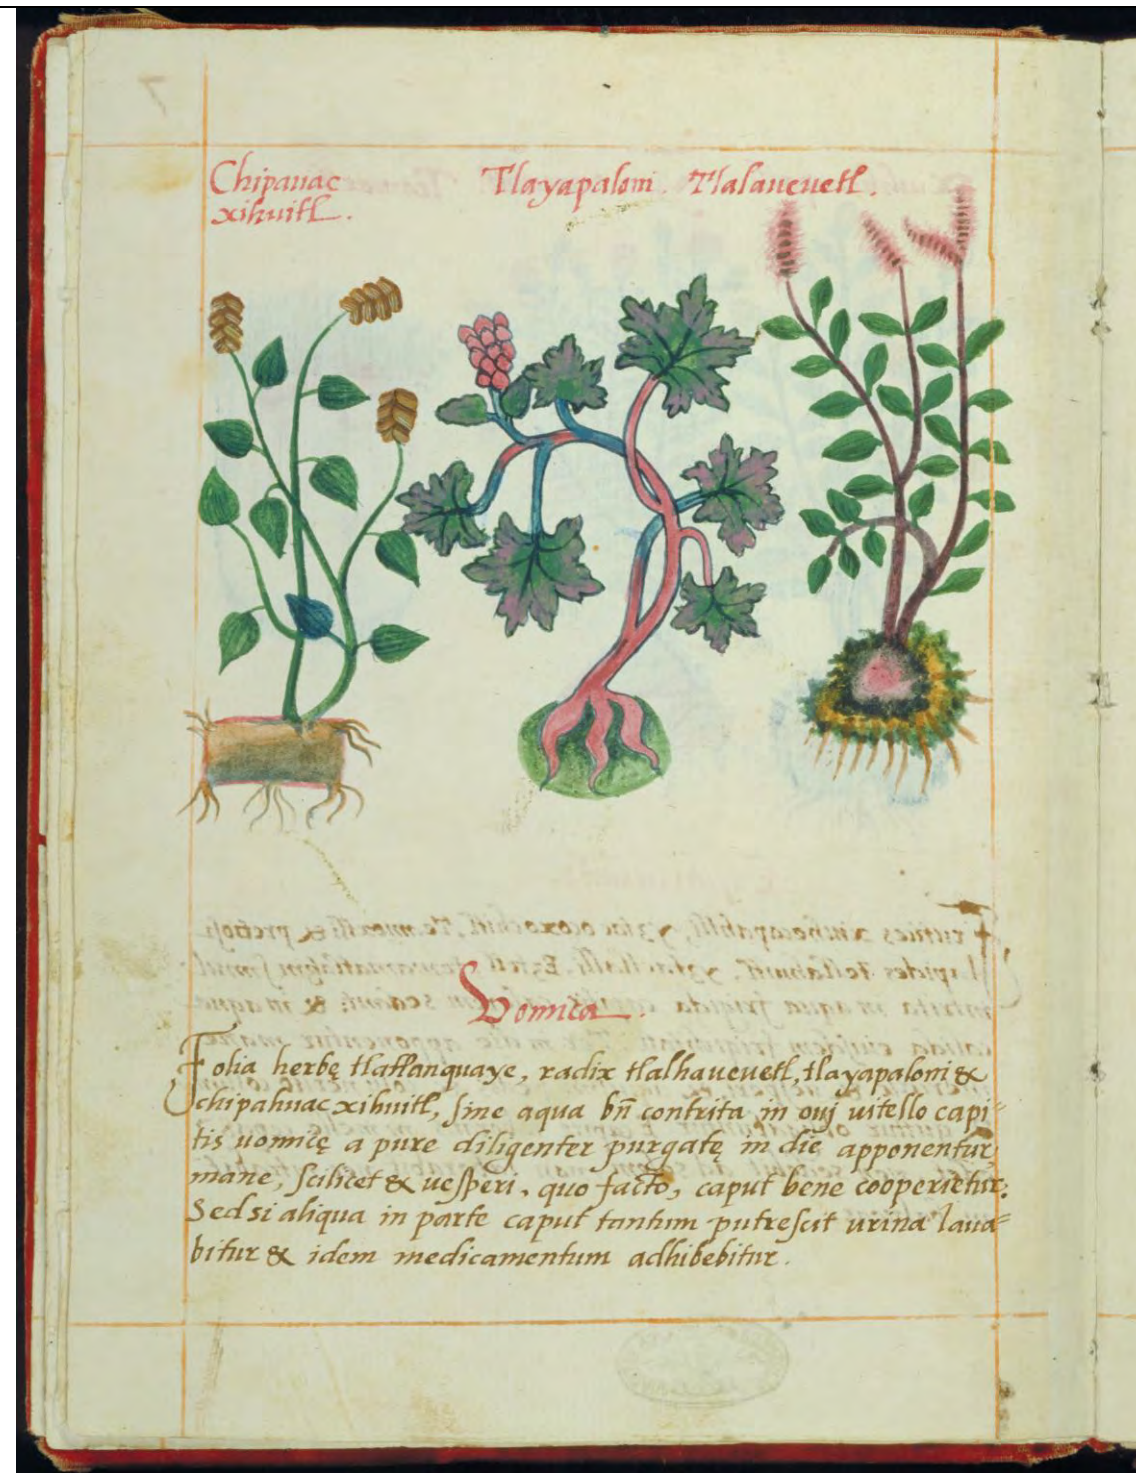 Chipauac Tlayapaloni. Tlalaueuetl.
xihuitl.
Vomica.
Folia herbę tlatlanquaye, radix tlalhaueuetl, tlayapaloni &
chipahuac xihuitl, sine aqua bñ contrita in ouj uitello capi=
tis uomicę a pure diligenter purgatę in die apponentur,
mane, scilicet & uesperi, quo facto, caput bene cooperietur:
Sed si aliqua in parte caput tantum putrescit urina laua=
bitur & idem medicamentum adhibebitur.